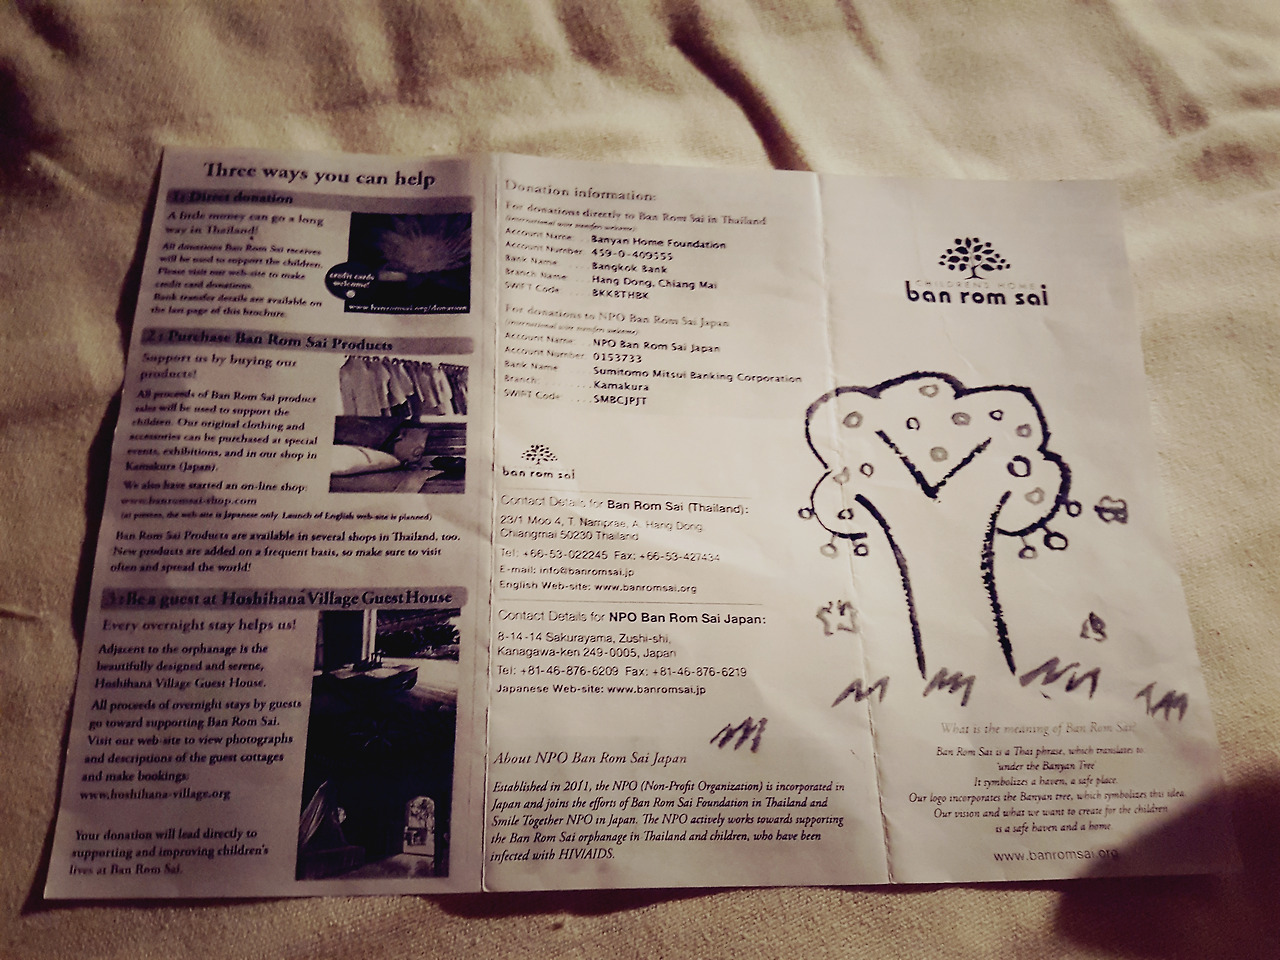 Three ways you can help
1: Direct donation
A little money can go a long
way in Thailand!
All donations Ban Rom Sai receives
will be used to support the children.
Please visit our web-site to make
credit card donations.
Bank transfer details are available on
the last page of this brochure.
credit cards
welcome!
www.banromsai.org/donation
2: Purchase Ban Rom Sai Products
Support us by buying our
products!
All proceeds of Ban Rom Sai product
sales will be used to support the
children. Our original clothing and
accessories can be purchased at special
events, exhibitions, and in our shop in
Kamakura (Japan).
We also have started an on-line shop:
www.banromsai-shop.com
(at present, the web-site is Japanese only. Launch of English web-site is planned)
Ban Rom Sai Products are available in several shops in Thailand, too.
New products are added on a frequent basis, so make sure to visit
often and spread the world!
3: Be a guest at Hoshihana Village Guest House
Every overnight stay helps us!
Adjacent to the orphanage is the
beautifully designed and serene,
Hoshihana Village Guest House.
All proceeds of overnight stays by guests
go toward supporting Ban Rom Sai.
Visit our web-site to view photographs
and descriptions of the guest cottages
and make bookings:
www.hoshihana-village.org
Your donation will lead directly to
supporting and improving children's
lives at Ban Rom Sai.
Donation information:
For donations directly to Ban Rom Sai in Thailand
(international wire transfers welcome)
Account Name: Banyan Home Foundation
Account Number: 459-0-409555
Bank Name: Bangkok Bank
Branch Name: Hang Dong, Chiang Mai
SWIFT Code: BKKBTHBK
For donations to NPO Ban Rom Sai Japan
(international wire transfers welcome)
Account Name: NPO Ban Rom Sai Japan
Account Number: 0153733
Bank Name: Sumitomo Mitsui Banking Corporation
Branch: Kamakura
SWIFT Code: SMBCJPJT
ban rom sai
Contact Details for Ban Rom Sai (Thailand):
23/1 Moo 4, T. Namprae, A. Hang Dong,
Chiangmai 50230 Thailand
Tel: +66-53-022245 Fax: +66-53-427434
E-mail: info@banromsai.jp
English Web-site: www.banromsai.org
Contact Details for NPO Ban Rom Sai Japan:
8-14-14 Sakurayama, Zushi-shi,
Kanagawa-ken 249-0005, Japan
Tel: +81-46-876-6209 Fax: +81-46-876-6219
Japanese Web-site: www.banromsai.jp
About NPO Ban Rom Sai Japan
Established in 2011, the NPO (Non-Profit Organization) is incorporated in
Japan and joins the efforts of Ban Rom Sai Foundation in Thailand and
Smile Together NPO in Japan. The NPO actively works towards supporting
the Ban Rom Sai orphanage in Thailand and children, who have been
infected with HIV/AIDS.
CHILDRENS HOME
ban rom sai
What is the meaning of Ban Rom Sai?
Ban Rom Sai is a Thai phrase, which translates to
'under the Banyan Tree'
It symbolizes a haven, a safe place.
Our logo incorporates the Banyan tree, which symbolizes this idea.
Our vision and what we want to create for the children
is a safe haven and a home.
www.banromsai.org